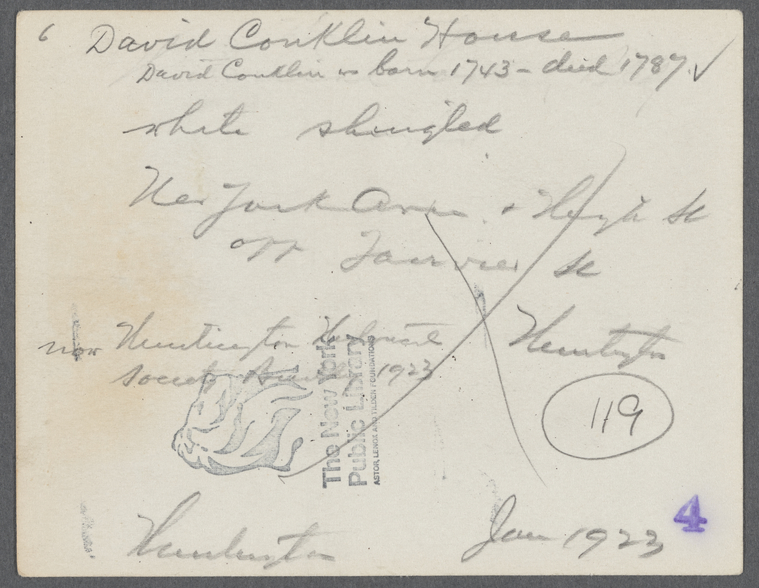 6 David Conklin House
David Conklin born 1743 - died 1787 ✓
white shingled
New York Ave. + High St
opp Fairview St
now Huntington Historical
Society 1923
Huntington
119
The New York
Public Library
ASTOR, LENOX AND TILDEN FOUNDATIONS
Huntington Jan 1923
4